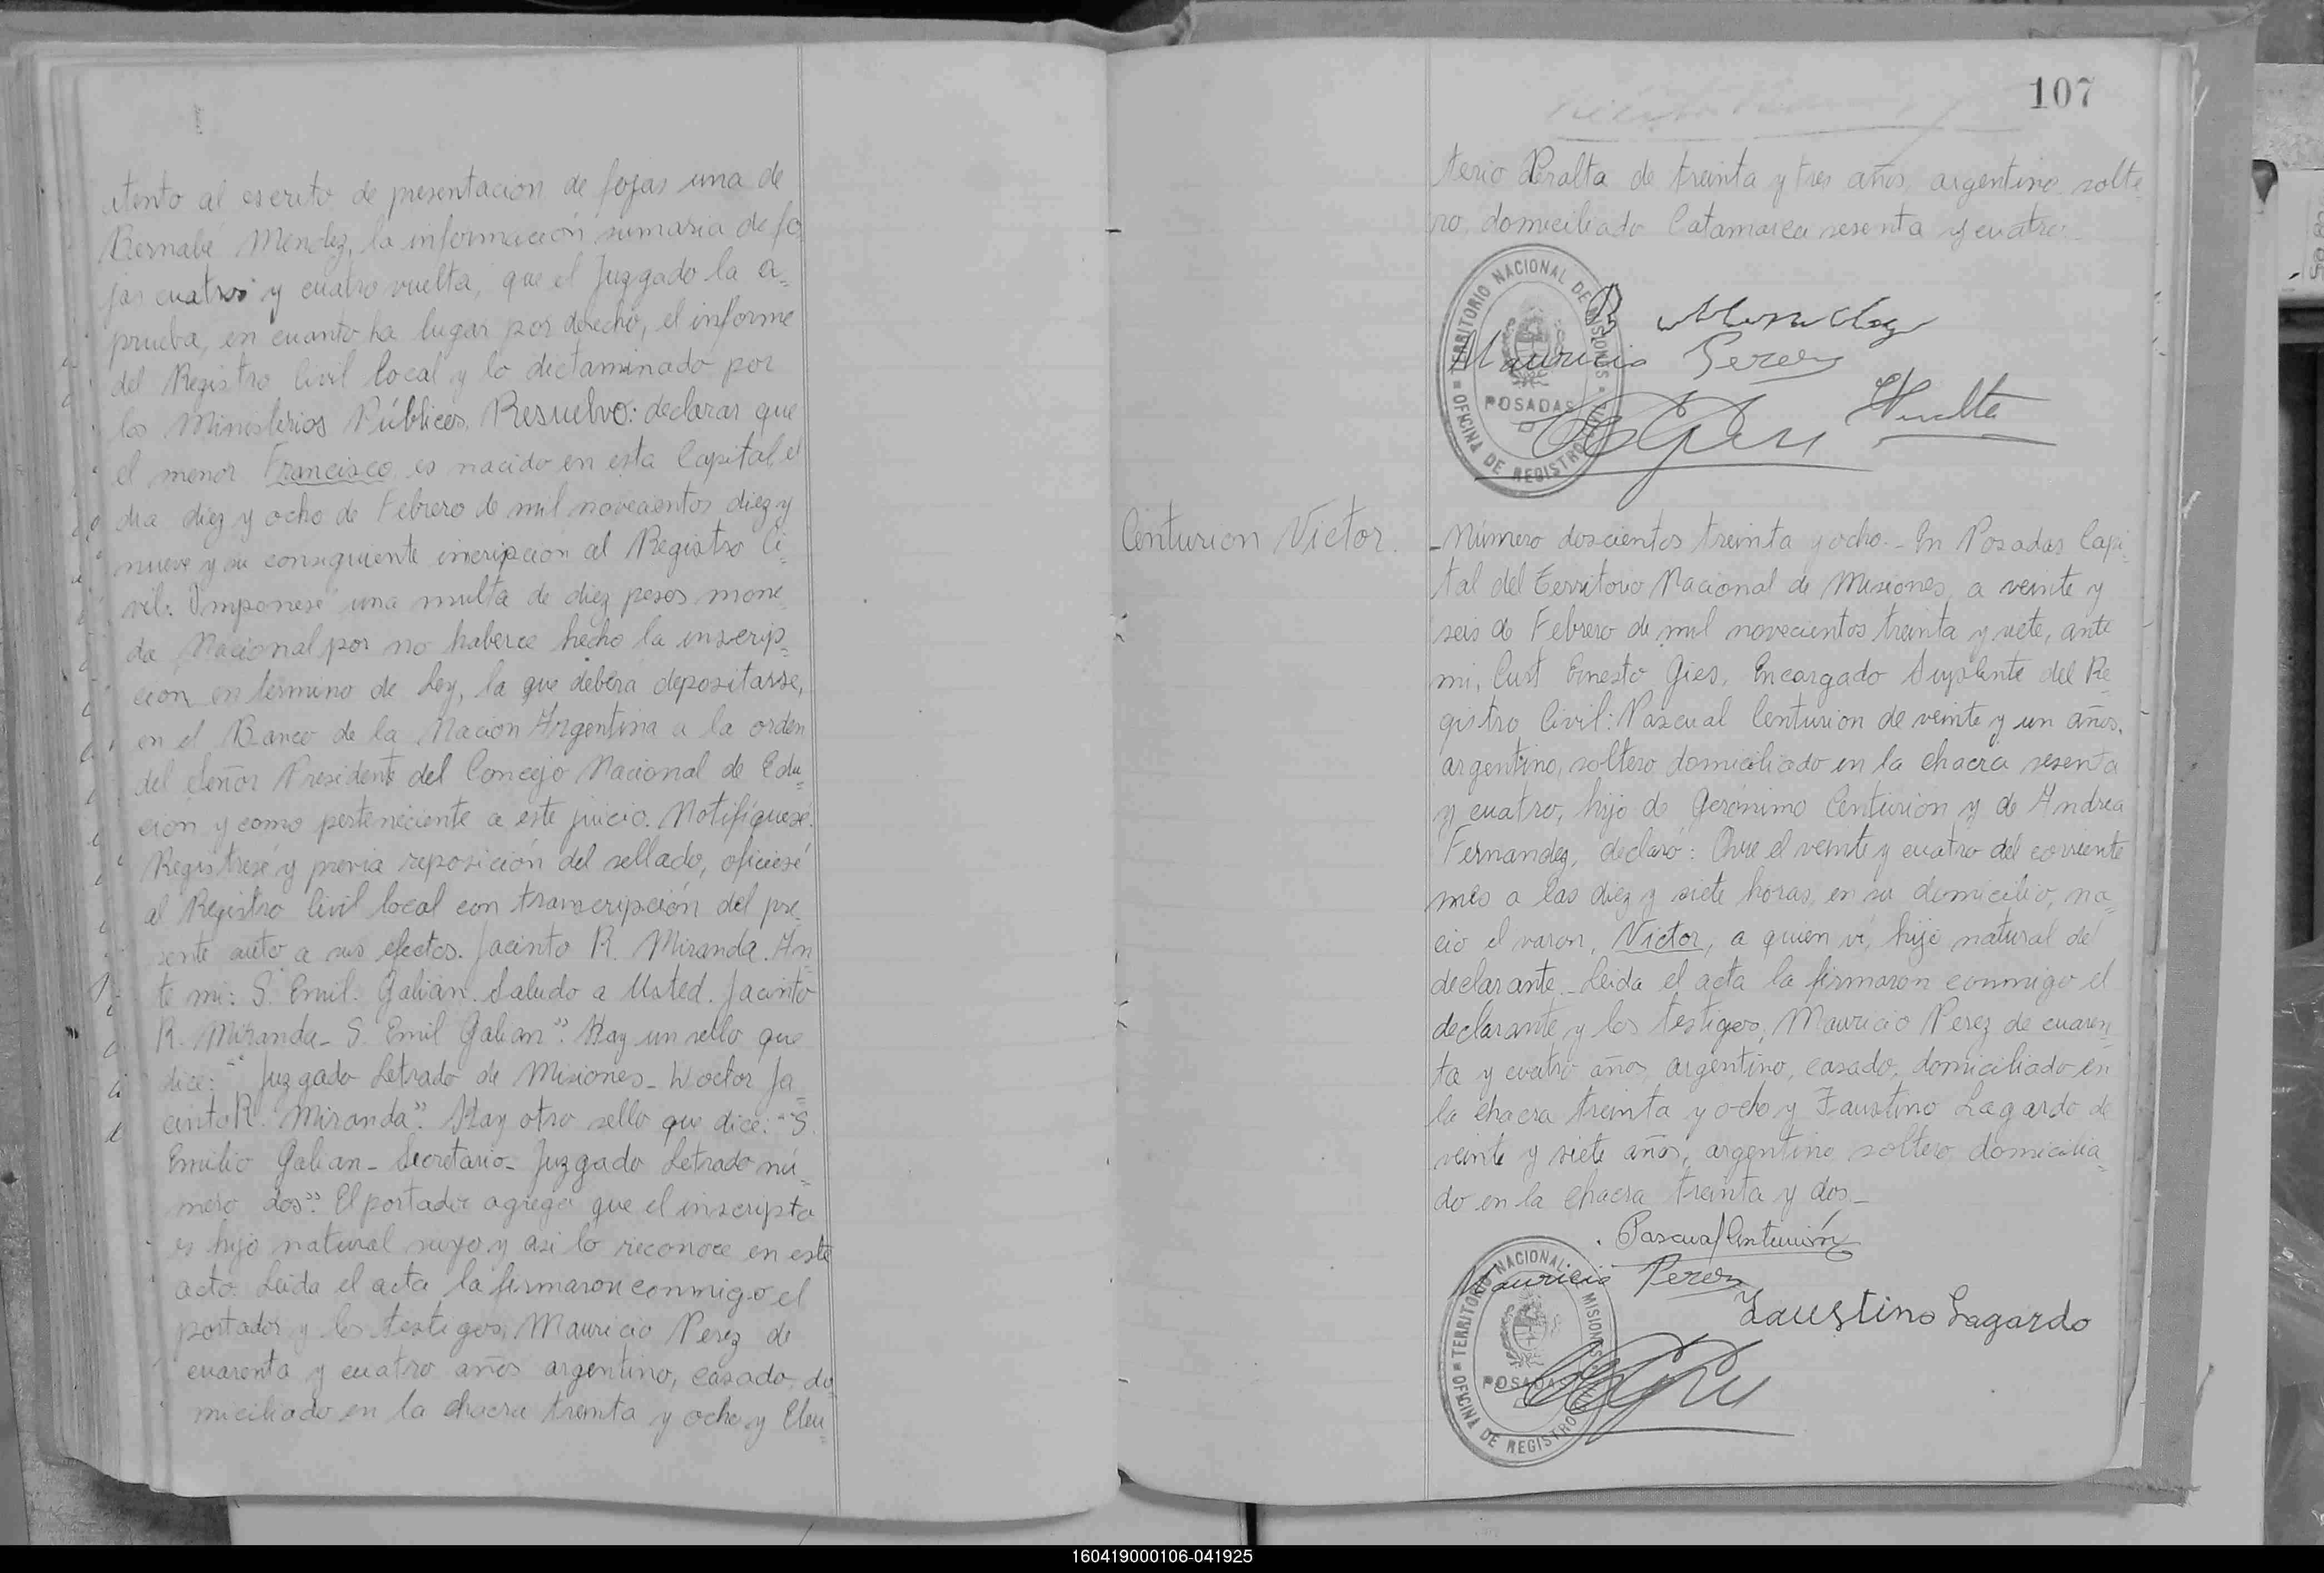 tento al escrito de presentacion de fojas una de
Bernabé Méndez, la información sumaria de fo
jas cuatro y cuatro vuelta, que el Juzgado la a=
prueba, en cuanto ha lugar por derecho, el informe
del Registro Civil local y lo dictaminado por
los Ministerios Públicos, Resuelvo: declarar que
el menor Francisco, es nacido en esta Capital, el
dia diez y ocho de Febrero de mil novecientos diez y
nueve y su consiguiente incripción al Registro Ci=
vil. Imponesé una multa de diez pesos mone
da Nacional por no haberce hecho la inscrip=
ción en termino de Ley, la que deberá depositarse,
en el Banco de la Nacion Argentina a la orden
del Señor Presidente del Concejo Nacional de Edu=
cion y como perteneciente a este juicio. Notifíquesé.
Registresé y previa reposición del sellado, oficiesé
al Registro Civil local con transcripción del pre=
sente auto a sus efectos. Jacinto R. Miranda. An
te mi: S. Emil. Galian. Saludo a Usted. Jacinto
R. Miranda - S. Emil Galian". Hay un sello que
dice: "Juzgado Letrado de Misiones - Doctor Ja=
cinto R. Miranda". Hay otro sello que dice: "S.
Emilio Galian - Secretario - Juzgado Letrado nú=
mero dos". El portador agrega que el inscripto
es hijo natural suyo y asi lo reconoce en este
acto. Leida el acta la firmaron conmigo el
portador y los testigos, Mauricio Perez de
cuarenta y cuatro años argentino, casado, do
miciliado en la chacra treinta y ocho y Eleu=
107
terio Peralta de treinta y tres años, argentino, solte
ro, domiciliado Catamarca sesenta y cuatro.
TERRITORIO NACIONAL DE MISIONES
OFICINA DE REGISTRO CIVIL
POSADAS
B Mendez
Mauricio Perez
Centurion Victor.
-Número doscientos treinta y ocho.- En Posadas Capi=
tal del Territorio Nacional de Misiones, a veinte y
seis de Febrero de mil novecientos treinta y siete, ante
mi, Curt Ernesto Gies, Encargado Suplente del Re
gistro Civil: Pascual Centurion de veinte y un años,
argentino, soltero, domiciliado en la chacra sesenta
y cuatro, hijo de Gerónimo Centurion y de Andrea
Fernandez, declaró: Que el veinte y cuatro del corriente
mes a las diez y siete horas, en su domicilio, na=
cio el varon, Victor, a quien ví, hijo natural del
declarante.- Leida el acta la firmaron conmigo el
declarante y los testigos, Mauricio Perez de cuaren=
ta y cuatro años, argentino, casado, domiciliado en
la chacra treinta y ocho y Faustino Lagardo de
veinte y siete años, argentino soltero, domicilia=
do en la chacra treinta y dos.-
Pascual Centurión
Mauricio Perez
Faustino Lagardo
TERRITORIO NACIONAL DE MISIONES
OFICINA DE REGISTRO
POSADAS
160419000106-041925